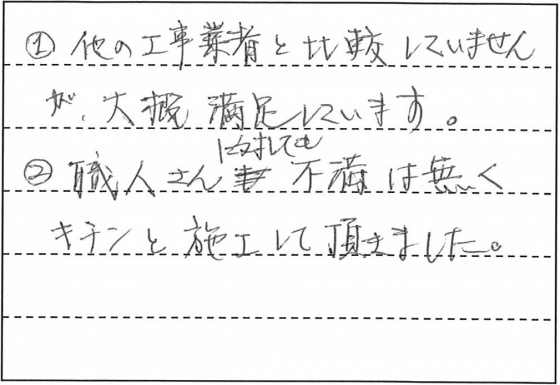 ① 他の工事業者と比較していません
が、大概満足しています。
に対しても
② 職人さん 不満は無く
キチンと施工して頂きました。